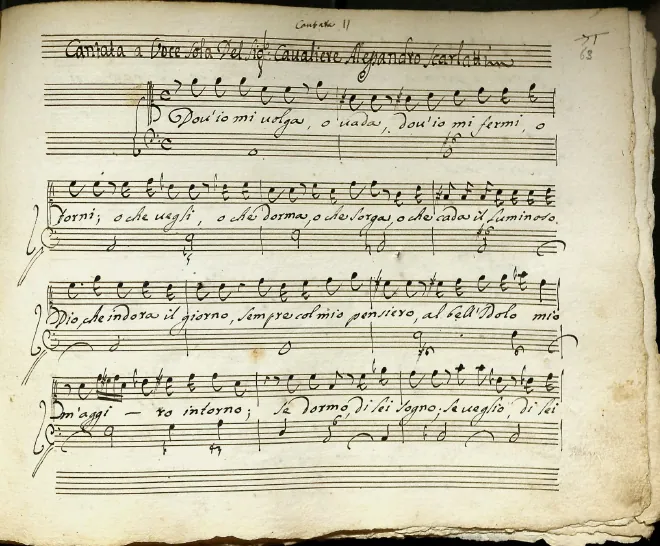 Cantata 11
71
63
Cantata a Voce sola Del Sig.r Cavaliere Alessandro Scarlatti
Dov'io mi volga, o vada, dov'io mi fermi, o
torni; o che vegli, o che dorma, o che sorga, o che cada il luminoso
Dio, che indora il giorno, sempre col mio pensiero, al bell'Idolo mio
m'aggi - ro intorno; se dormo, di lei sogno; se veglio, di lei